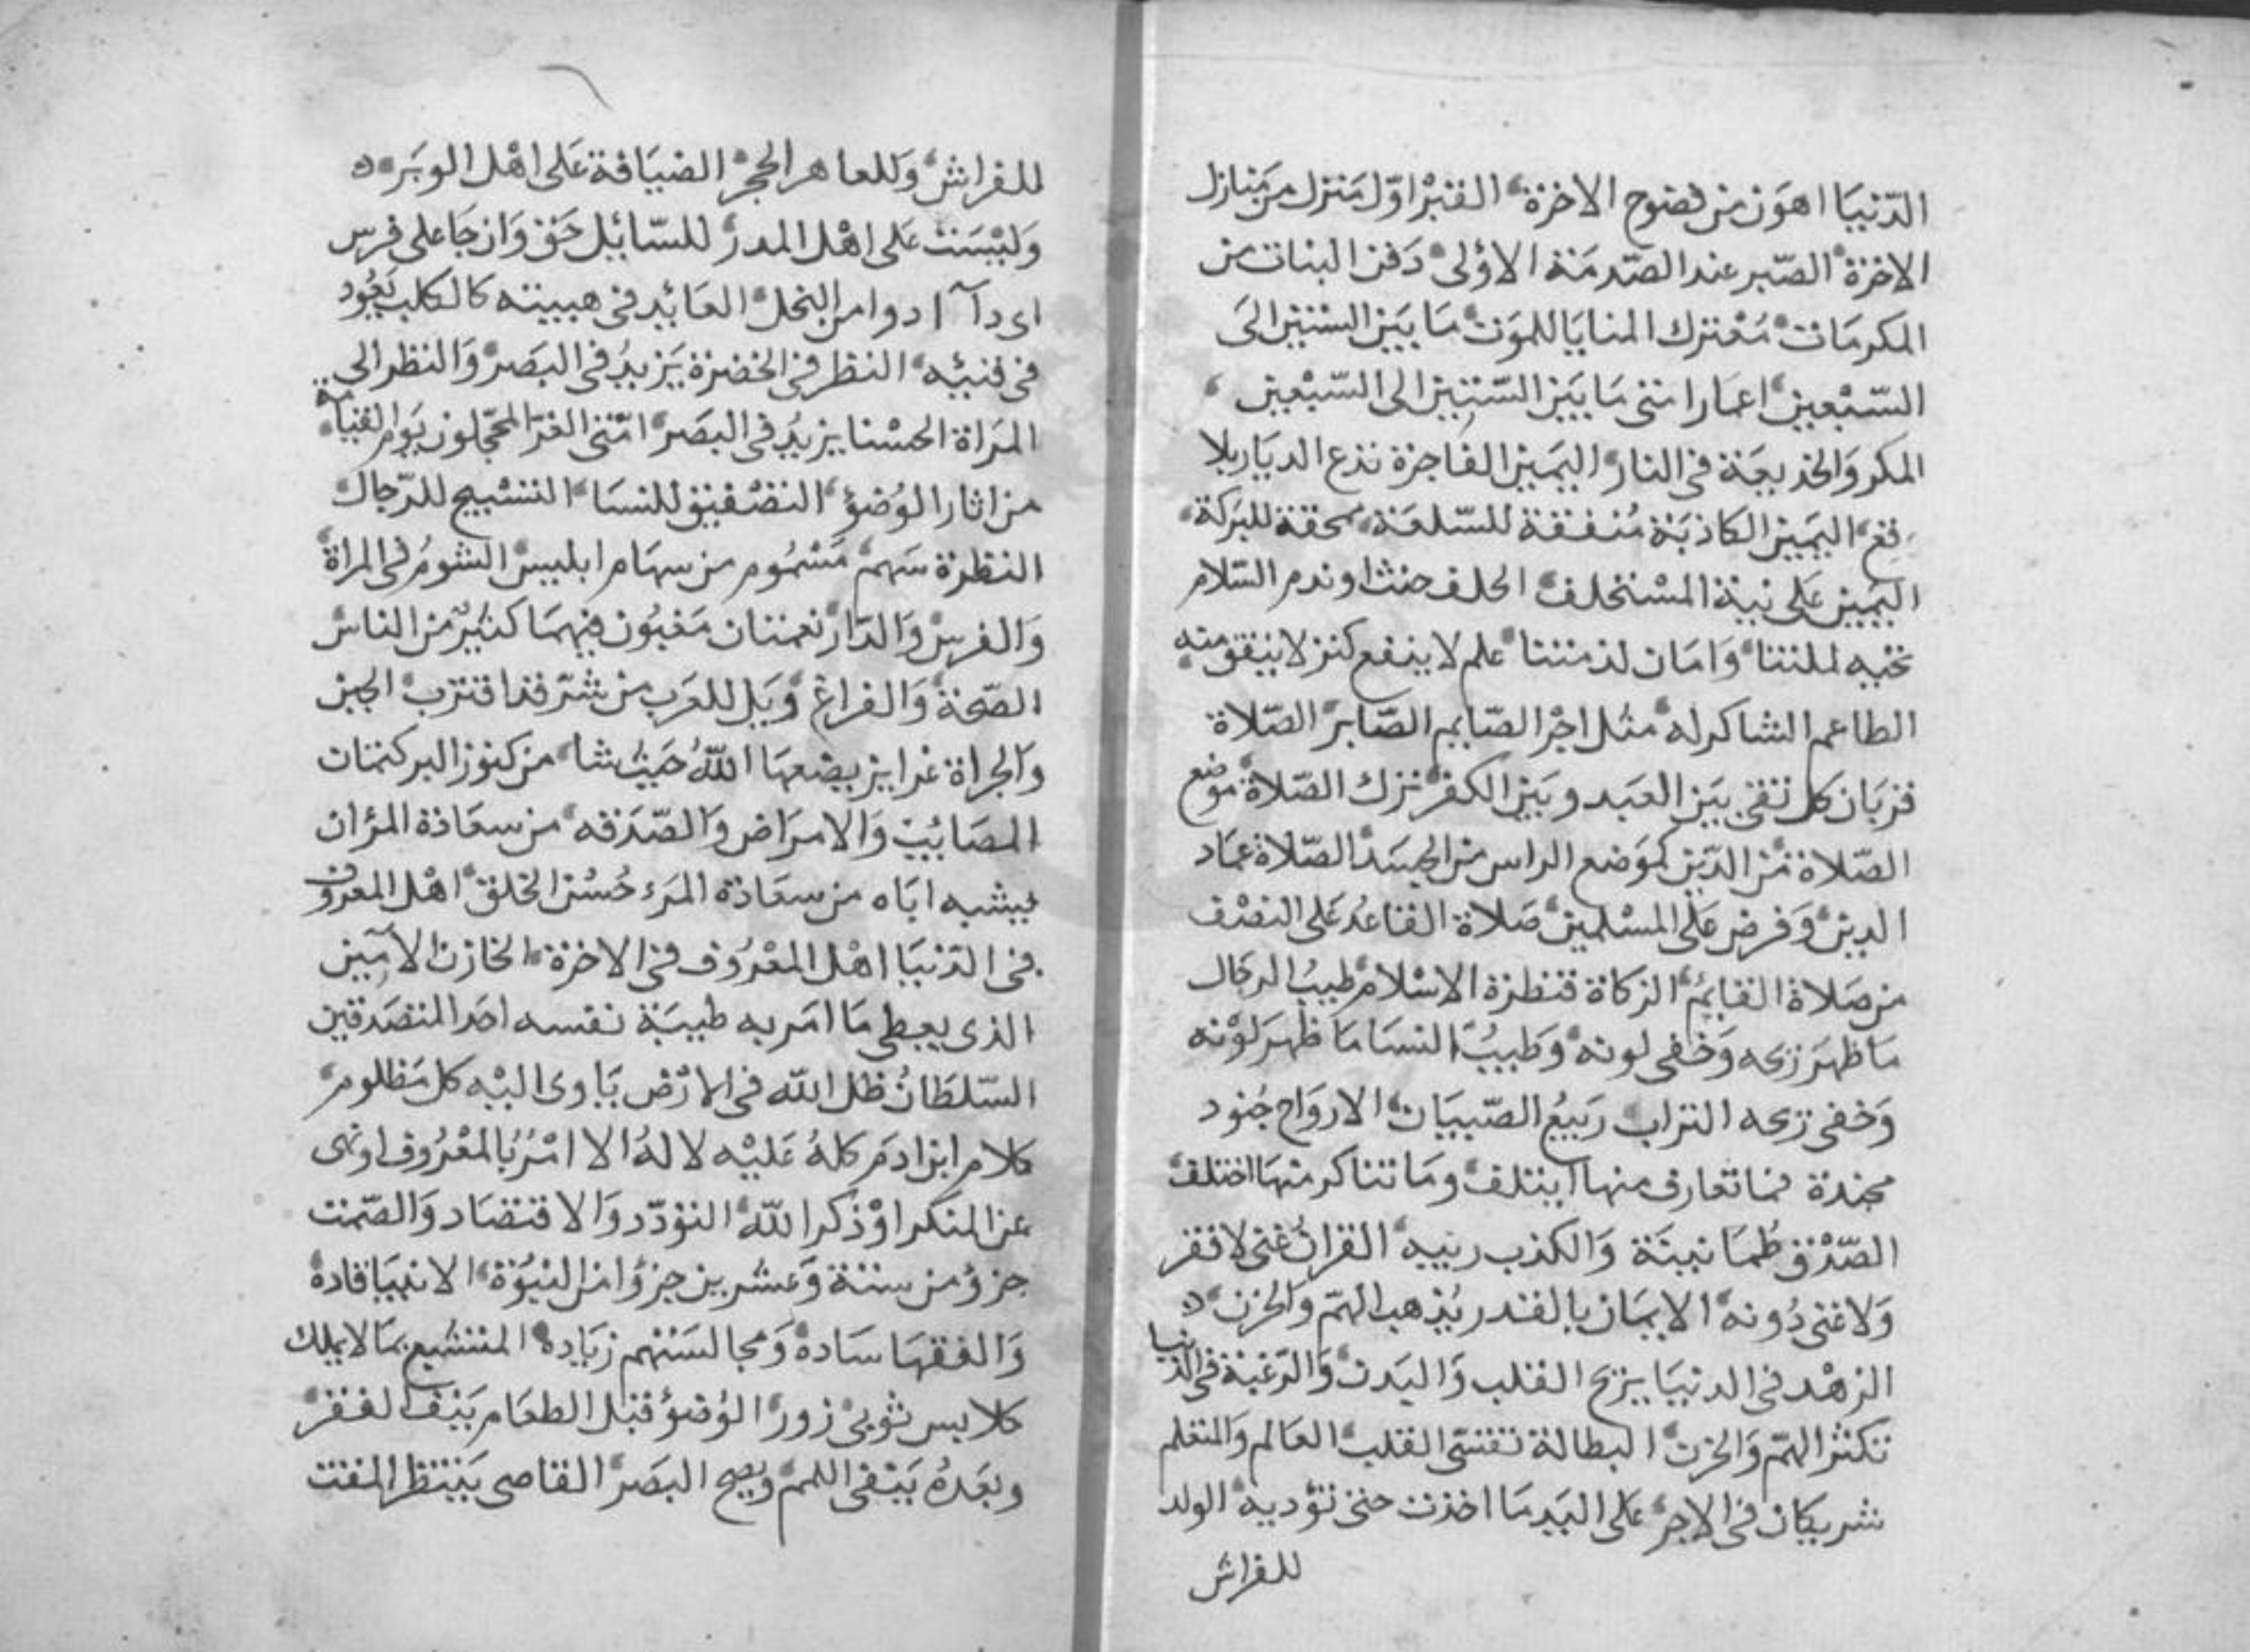 الدّنيَا اهوَن من فضوح الاخرة القبرْ اوّل مَنزل من مَنازل
الاخرة الصّبر عند الصّدمَة الاوُلى دَفن البنات من
المكرمَات مُعْترك المنايَا للموَت مَا بيَن الستين الىَ
السّبْعين اعمَار امتى مَا بيَن السّتين الى السّبْعين
المكر وَالخديعَة فى النار اليَمين الفاجرة تذع الديَار بلا
قع اليَمين الكاذبَة مُنفقة للسّلعَة محقة للبَركة
اليَمين عَلى نية المسْتحلف الحلف حنث او ندم السّلام
تحيه لملتنا وَامَان لذمتنا علم لا ينفع كنز لا ينفق منه
الطاعم الشاكر له مثل اجْر الصّايم الصّابر الصّلاة
قربَان كل تقى بيَن العَبد وبيَن الكفر ترك الصّلاة موضع
الصّلاة مَن الدّين كموَضع الراس من الجسَد الصّلاة عمَاد
الدين وَفرض عَلى المسْلمين صَلاة القاعدُ عَلى النصْف
من صَلاة القايم الزكاة قنطرة الاسْلام طيبُ الرجَال
مَا ظهرَ ريحه وَخفى لونه وَطيبُ النسَا مَا ظهرَ لوْنه
وَخفى ريحه التراب رَبيعُ الصّبيَان الارواح جُنود
مجندة فمَا تعَارف منهَا ايتلف ومَا تناكر منهَا اختلف
الصّدْق طمَانينَة وَالكذب ريبه القرانُ غنى لا فقر
وَلا غنى دُونه الايمَان بالقدر يُذهب الهمّ وَالحزن
الزهْد فى الدنيَا يريح القلب وَاليَدن وَالرّغبَة فى الدنيا
تكثر الهمّ وَالحزن البطالة تقسّى القلب العَالم وَالمتعلم
شريكان فى الاجر عَلى اليَد مَا اخذت حتى تؤديه الولد
للفراش
للفراش وَللعاهر الحجر الضيَافة عَلى اهْل الوبَر
وَليْسَت عَلى اهْل المدر للسّائل حَق وَان جَا على فرس
اى دآ ادوا من البخل العَايد فى هبيته كالكلب يَعُود
فى قيئه النظر فى الخضرة يَزيدُ فى البَصر وَالنظر الى
المَراة الحسْنا يزيدُ فى البصَر امّتى الغرّ المحَجّلون يَوم القيامة
من اثار الوُضؤ التصْفيق للنسَا التسْبيح للرّجال
النظرة سَهم مَسْمُوم من سهَام ابليس الشومُ فى المراة
وَالفرس وَالدّار نعمتان مَغبُون فيهمَا كثيرٌ من الناس
الصّحة وَالفراغ وَيل للعرَب من شرّ قد اقترب الجبن
وَالجراة غرايز يضعهَا اللّه حَيثُ شا من كنوز البر كتمَان
المصَايب وَالامرَاض وَالصّدَقه من سعَاذة المرؤ ان
يشبه ابَاه من سعَاذة المرَء حُسْن الخلق اهْل المعروف
فى الدّنيَا اهْل المعْرُوف فى الاخرة الخازن الامَين
الذى يعطى مَا امَر به طيبَة نفسه احَد المتصَدقين
السّلطانُ ظل اللّه فى الارْض يَاوى اليْه كل مَظلوم
كلام ابن ادمَ كلهُ عَليْه لا لهُ الا امْرُ بالمعْرُوف او نهى
عن المنكر اوْ ذكر اللّه التؤدّد وَالاقتصَاد وَالصّمت
جزؤ من ستة وَعشرين جزؤا من النبُوّة الانبيَا قادة
وَالفقهَا سَادة وَمجالسَتهم زيَادة المتشبع بمَا لا يملك
كلابس ثوبى زور الوُضوُ قبْل الطعَام يَنفى الفقر
وبعَدهُ يَنفى اللمم ويصح البصَر القاصى يَنتظر المقت